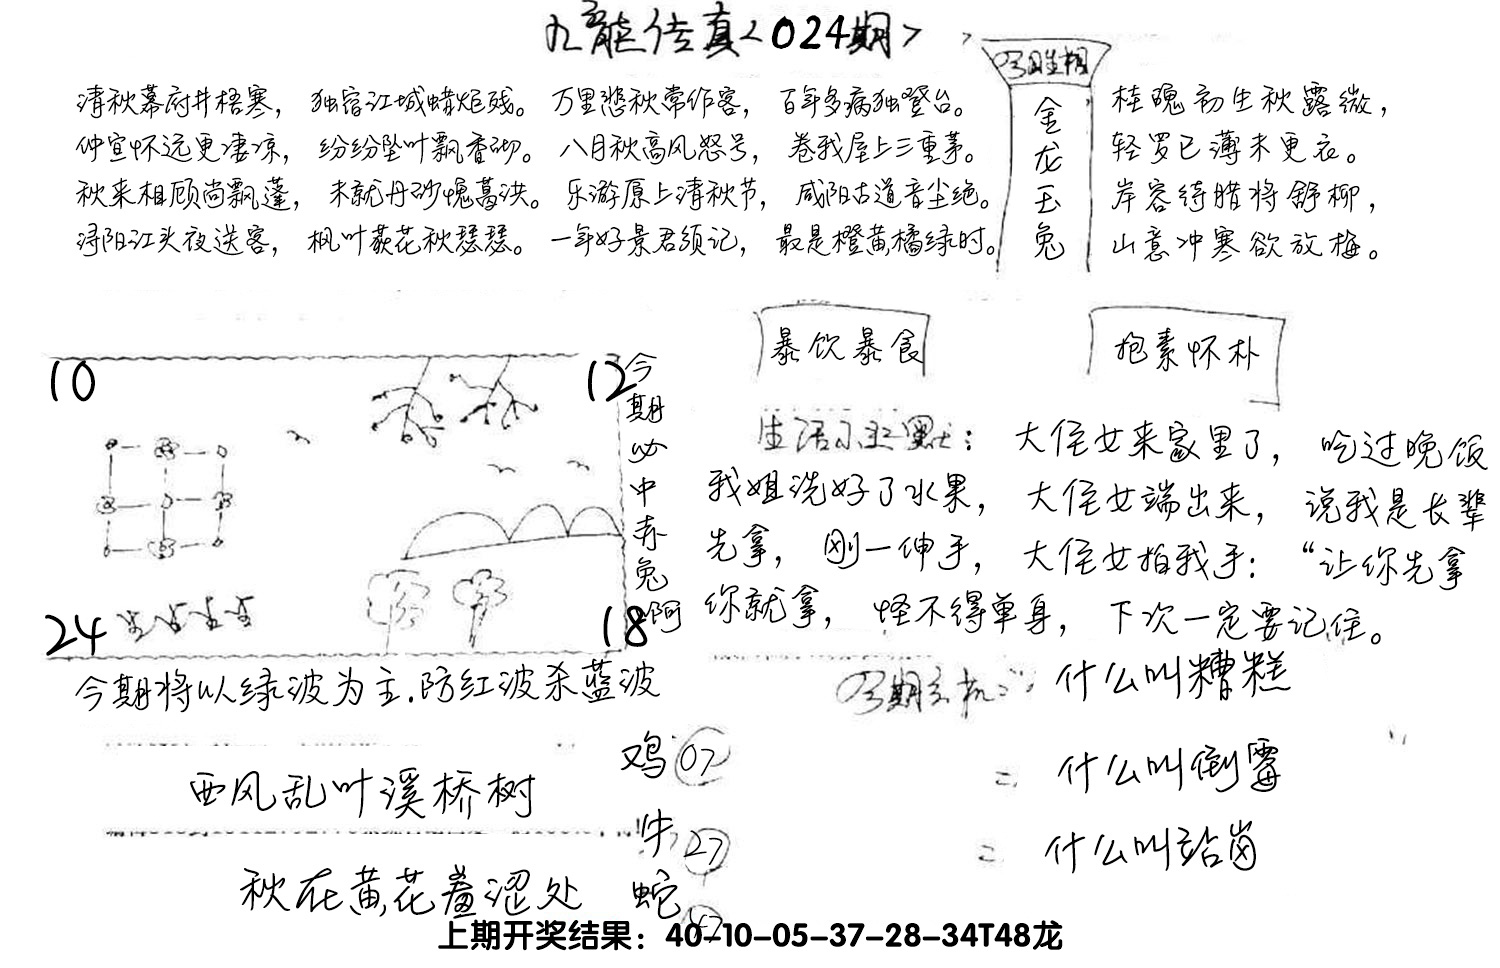 九龙传真<024期>
清秋幕府井梧寒，独宿江城蜡炬残。万里悲秋常作客，百年多病独登台。
仲宣怀远更凄凉，纷纷坠叶飘香砌。八月秋高风怒号，卷我屋上三重茅。
秋来相顾尚飘蓬，未就丹砂愧葛洪。乐游原上清秋节，咸阳古道音尘绝。
浔阳江头夜送客，枫叶荻花秋瑟瑟。一年好景君须记，最是橙黄橘绿时。
金龙玉兔
桂魄初生秋露微，
轻罗已薄未更衣。
岸容待腊将舒柳，
山意冲寒欲放梅。
10
12
24
18
今期必中赤兔啊
今期将以绿波为主.防红波杀蓝波
暴饮暴食
抱素怀朴
生活小幽默：大侄女来家里了，吃过晚饭
我姐洗好了水果，大侄女端出来，说我是长辈
先拿，刚一伸手，大侄女拍我手：“让你先拿
你就拿，怪不得单身，下次一定要记住。
今期玄机：什么叫糟糕
二：什么叫倒霉
什么叫站岗
西风乱叶溪桥树
秋在黄花羞涩处
鸡07
牛27
蛇
上期开奖结果：40-10-05-37-28-34T48龙